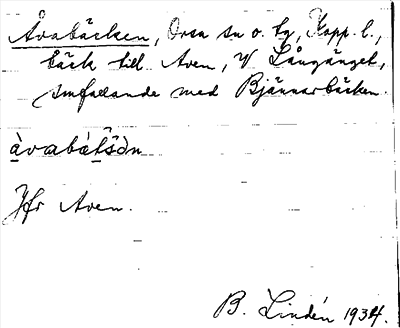 Åvabäcken, Orsa sn o. tg, Kopp. l.,
bäck till Aven, V Långänget,
smfallande med Bjännarbäcken.
Jfr Aven.
B. Lindén 1934.